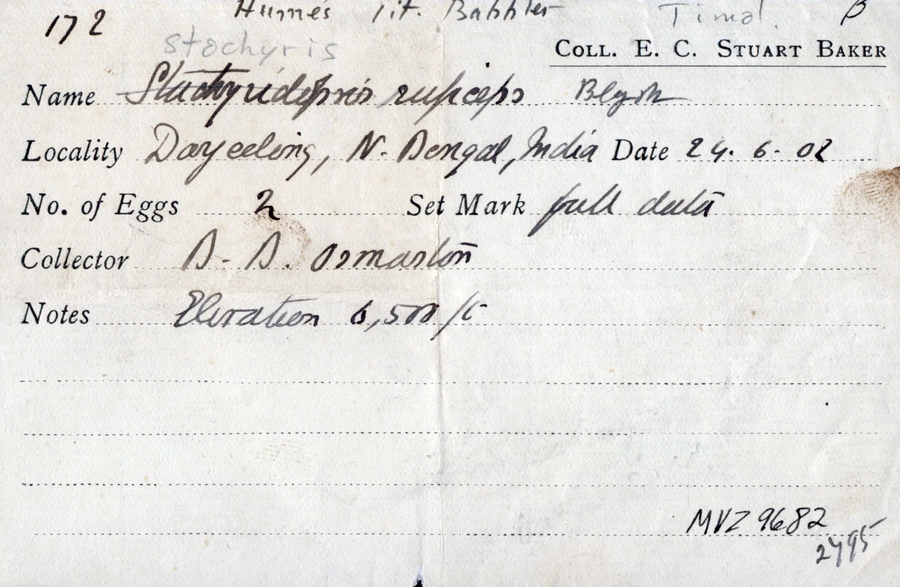 172 Hume's Tit. Babbler Timal. B
stachyris
COLL. E. C. STUART BAKER
Name Stachyridopsis ruficeps Blyth
Locality Darjeeling, N. Bengal, India Date 24. 6. 02
No. of Eggs 2 Set Mark full data
Collector B. B. Osmaston
Notes Elevation 6,500 ft
MVZ 9682
2795